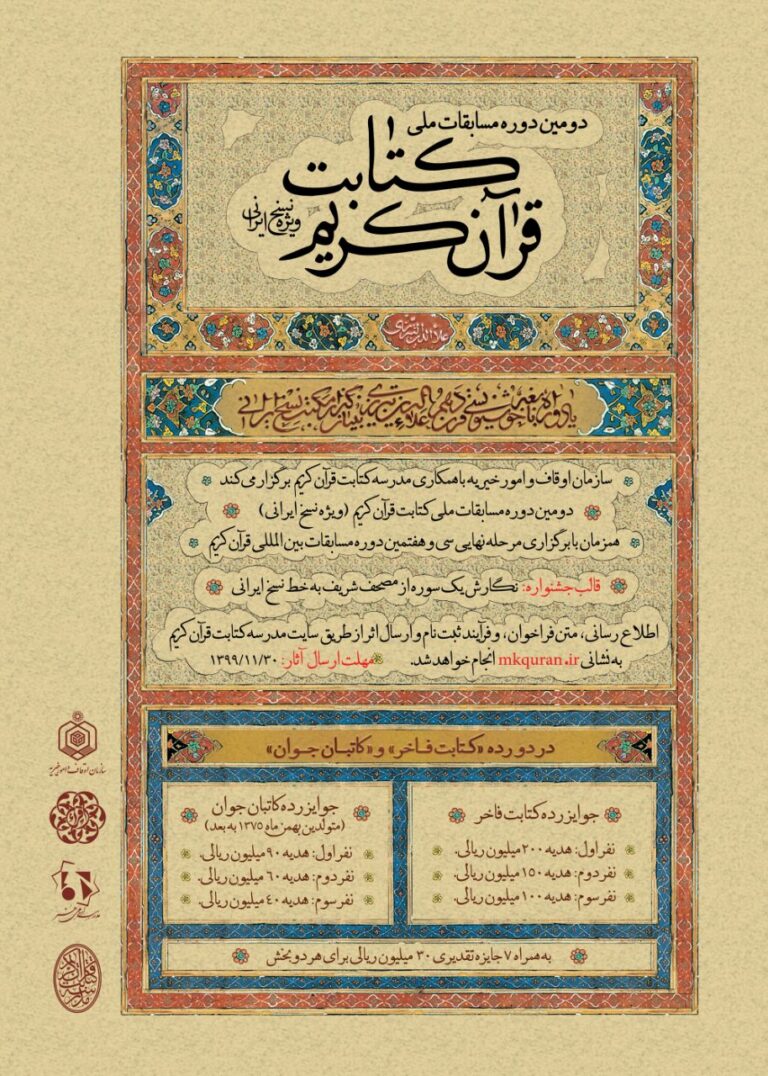 دومین دوره مسابقات ملی
کتابت
قرآن کریم
ویژه نسخ ایرانی
علاءالدین تبریزی
سازمان اوقاف و امور خیریه با همکاری مدرسه کتابت قرآن کریم برگزار می‌کند
دومین دوره مسابقات ملی کتابت قرآن کریم (ویژه نسخ ایرانی)
همزمان با برگزاری مرحله نهایی سی و هفتمین دوره مسابقات بین المللی قرآن کریم
قالب جشنواره: نگارش یک سوره از مصحف شریف به خط نسخ ایرانی
اطلاع رسانی، متن فراخوان، و فرآیند ثبت نام و ارسال اثر از طریق سایت مدرسه کتابت قرآن کریم
به نشانی mkquran.ir انجام خواهد شد. مهلت ارسال آثار: ۱۳۹۹/۱۱/۳۰
در دو رده «کتابت فاخر» و «کاتبان جوان»
جوایز رده کتابت فاخر
نفر اول: هدیه ۲۰۰ میلیون ریالی.
نفر دوم: هدیه ۱۵۰ میلیون ریالی.
نفر سوم: هدیه ۱۰۰ میلیون ریالی.
جوایز رده کاتبان جوان
(متولدین بهمن ماه ۱۳۷۵ به بعد)
نفر اول: هدیه ۹۰ میلیون ریالی.
نفر دوم: هدیه ۶۰ میلیون ریالی.
نفر سوم: هدیه ۴۰ میلیون ریالی.
به همراه ۷ جایزه تقدیری ۳۰ میلیون ریالی برای هر دو بخش
سازمان اوقاف و امور خیریه